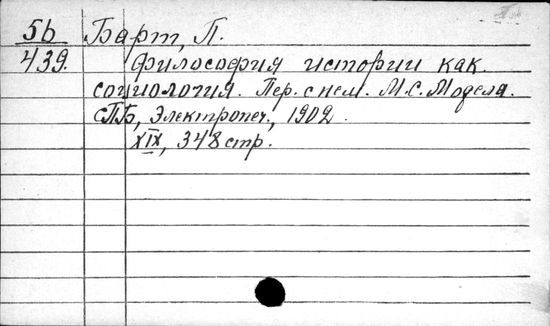 5b Барт, П.
439. Философия истории как
социология. Пер. с нем. М.С. Модела.
СПБ, Электропеч., 1902.
XIX, 348 стр.